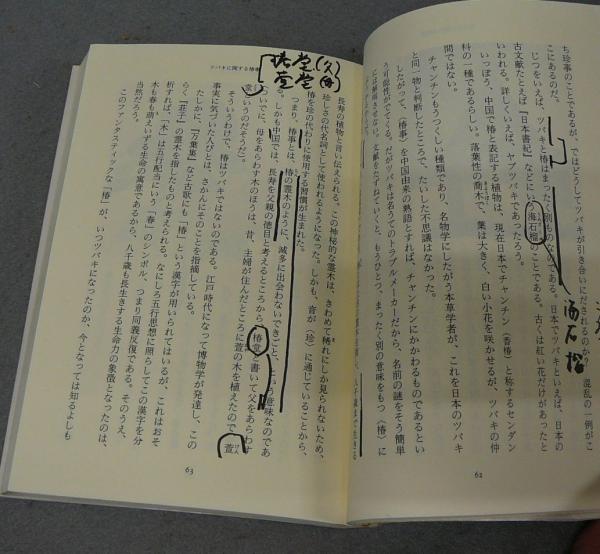 ち珍事のことであるが、ではどうしてツバキが引き合いにだされるのか。混乱の一例がこ
こにあるのだ。
じつをいえば、ツバキと椿はまったく別ものなのである。日本でツバキといえば、日本の
古文献たとえば『日本書紀』などにいう海石榴のことである。古くは紅い花だけがあったと
いわれる。詳しくいえば、ヤブツバキであったろう。
いっぽう、中国で椿と表記する植物は、現在日本でチャンチン(香椿)と称するセンダン
科の一種であるらしい。落葉性の喬木で、葉は大きく、白い小花を咲かせるが、ツバキの仲
間ではない。
チャンチンもうつくしい種類であり、名物学にしたがう本草学者が、これを日本のツバキ
と同一物と判断したところで、たいした不思議はなかった。
したがって、〈椿事〉を中国由来の熟語とすれば、チャンチンにかかわるものであるとい
う可能性がでてくる。だがツバキは名うてのトラブルメーカーだから、名前の謎をそう簡単
には解明させない。文献をたずねていくと、もうひとつ、まったく別の意味をもつ〈椿〉に
八千歳まで生きる
62
海石榴
ツバキに関する椿事
椿堂(父
萱堂 母)
長寿の植物と言い伝えられる。この神秘的な霊木は、きわめて稀れにしか見られないため、
珍しさの代名詞として使われるようになった。しかも、音が〈珍〉に通じていることから、
椿を珍の代わりに使用する習慣が生まれた。
つまり、椿事とは、椿の霊木のように、滅多に出会わないできごと、という意味なのであ
る。しかも中国では、長寿を父親の徳目と考えるところから、椿堂と書いて父をあらわす
(ついでに、母をあらわす木のほうは、昔、主婦が住んだところに萱の木を植えたので、萱
堂というのだそうだ)。
そういうわけで、椿はツバキではないのである。江戸時代になって博物学が発達し、この
事実に気づいた人びとは、さかんにそのことを指摘している。
たしかに、『万葉集』など古歌にも「椿」という漢字が用いられてはいるが、これはおそ
らく『荘子』の霊木を指したものと考えられる。なにしろ五行思想に照らしてこの漢字を分
析すれば、「木」は五行配当にいう「春」のシンボル、つまり同義反復である。そのうえ、
木も春も萌えいずる生命の寓意であるから、八千歳も長生きする生命力の象徴となったのは、
当然だろう。
このファンタスティックな「椿」が、いつツバキになったのか、今となっては知るよしも
63